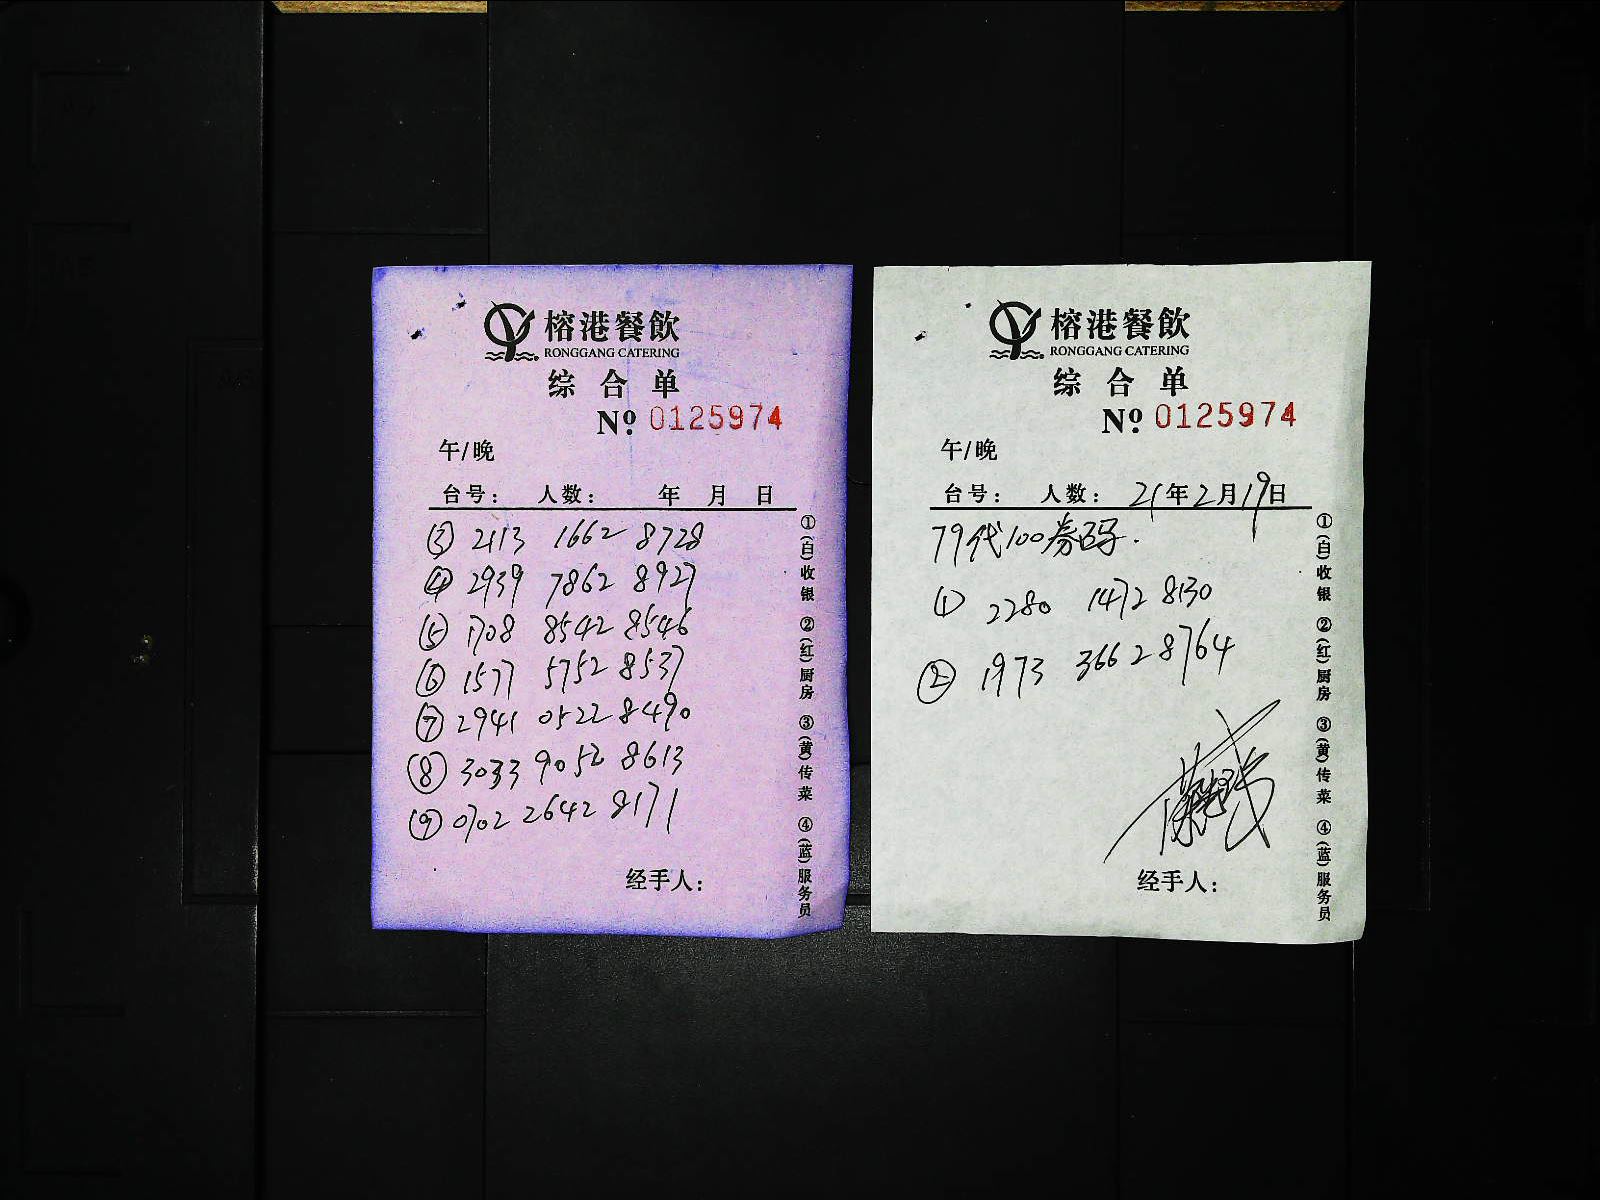 榕港餐飲
RONGGANG CATERING
综合单
Nº 0125974
午/晚
台号： 人数： 年 月 日
③ 2113 1662 8728
④ 2939 7862 8927
⑤ 1708 8542 8546
⑥ 1577 5752 8537
⑦ 2941 0522 8490
⑧ 3033 9052 8613
⑨ 0702 2642 8171
经手人：
①(白)收银 ②(红)厨房 ③(黄)传菜 ④(蓝)服务员
榕港餐飲
RONGGANG CATERING
综合单
Nº 0125974
午/晚
台号： 人数： 21年2月19日
79代100券码.
① 2280 1472 8130
② 1973 3662 8764
经手人：
①(白)收银 ②(红)厨房 ③(黄)传菜 ④(蓝)服务员